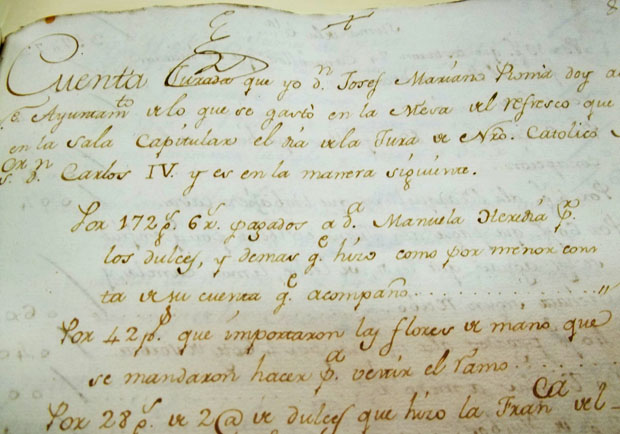 Cuenta Jurada que yo dn. Josef Mariano Roma doy a
e. Ayuntamto. de lo que se gastó en la Mesa del refresco que
en la Sala Capitular el dia de la Jura de Nro. Catolico
Sor. Dn. Carlos IV. y es en la manera siguiente.
Por 172ps. 6rs. pagados a da. Manuela Heredia pr.
los dulces, y demas qe. hizo como por menor cons
ta de su cuenta qe. acompaño.......... "
Por 42ps. que importaron las flores de mano que
se mandaron hacer pa. vestir el ramo......
Por 28ps. de 2@ de dulces que hizo la Franca. del